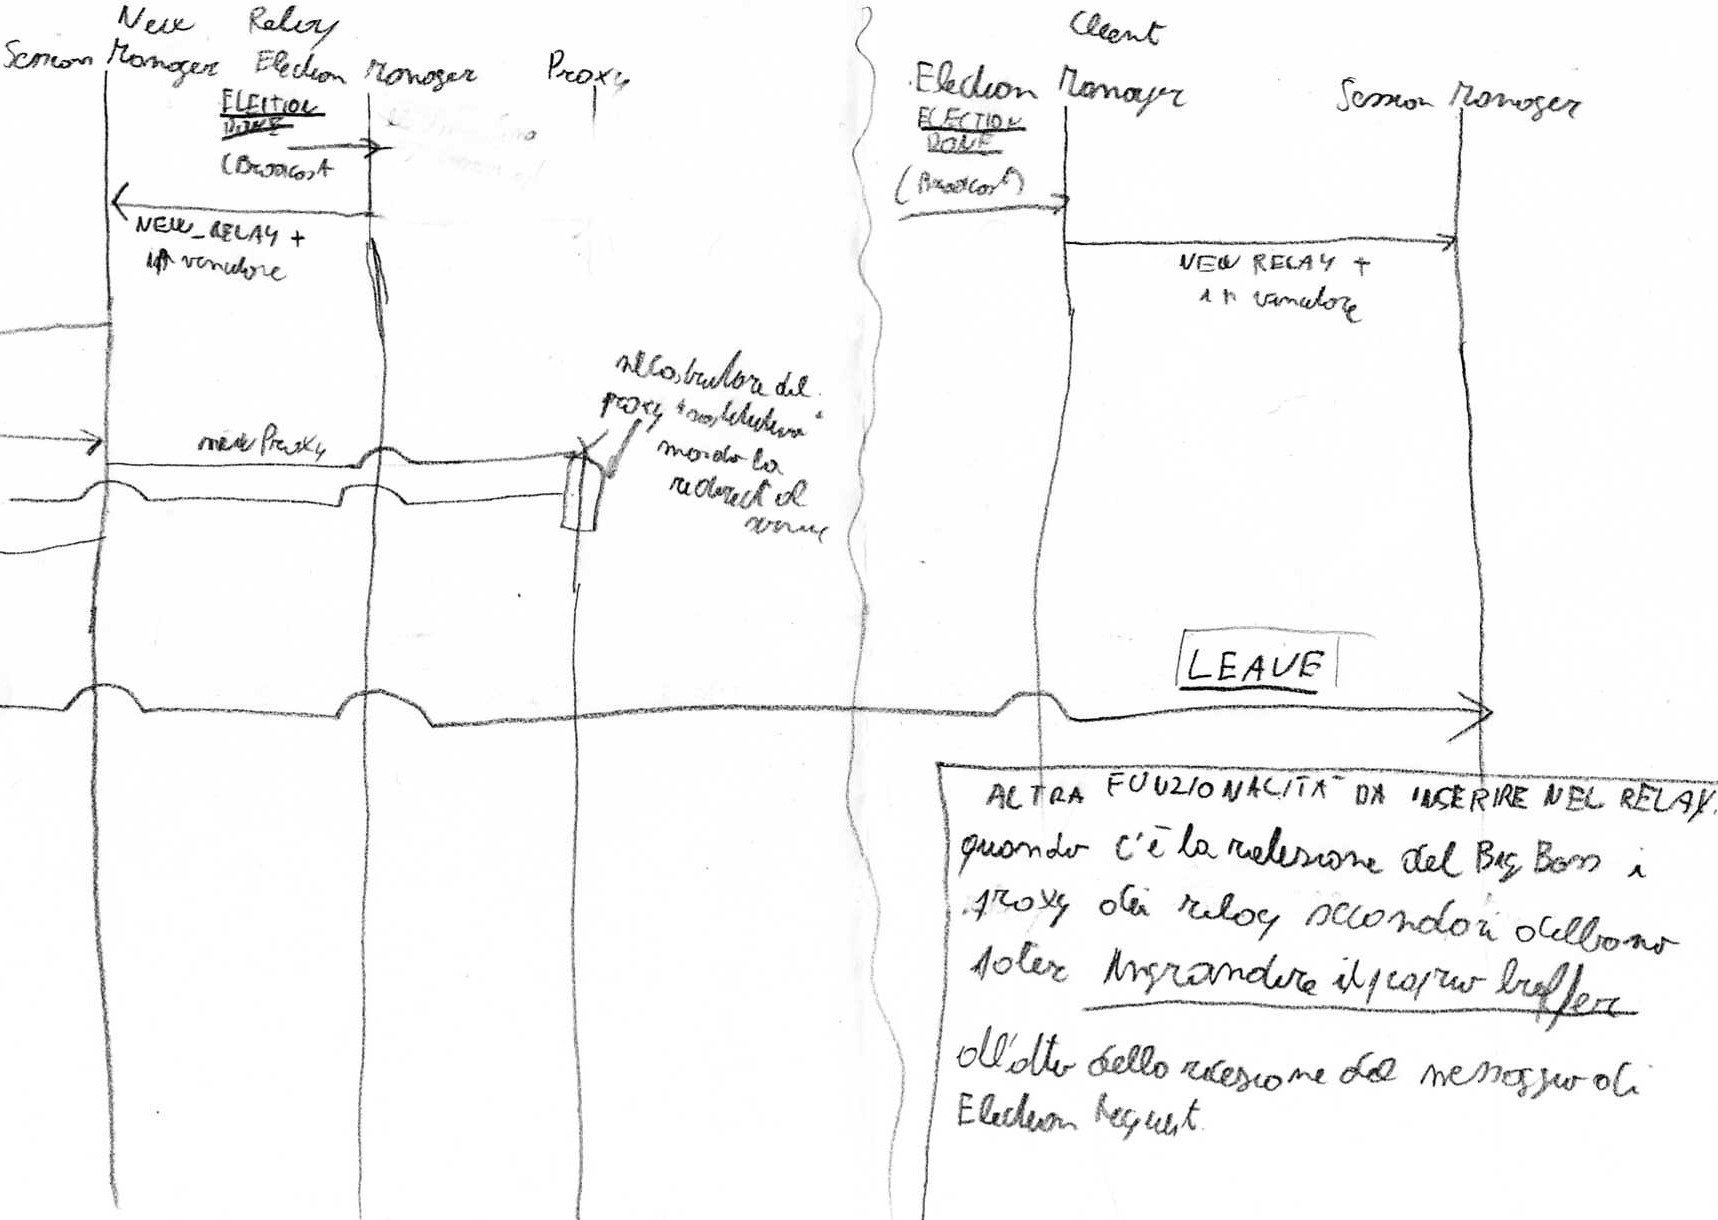 New Relay
Session Manager Election Manager Proxy
ELEITION
DONE
(Broadcast
NEW_RELAY +
IP vincitore
new Proxy
nel costruttore del
proxy "sostitutivo"
mando la
redirect al
server
Client
Election Manager Session Manager
ELECTION
DONE
(Broadcast)
NEW RELAY +
IP vincitore
LEAVE
ALTRA FUNZIONALITA' DA INSERIRE NEL RELAY.
quando c'è la rielezione del Big Boss i
proxy dei relay secondari debbono
poter ingrandire il proprio buffer
all'atto della ricezione del messaggio di
Election Request.